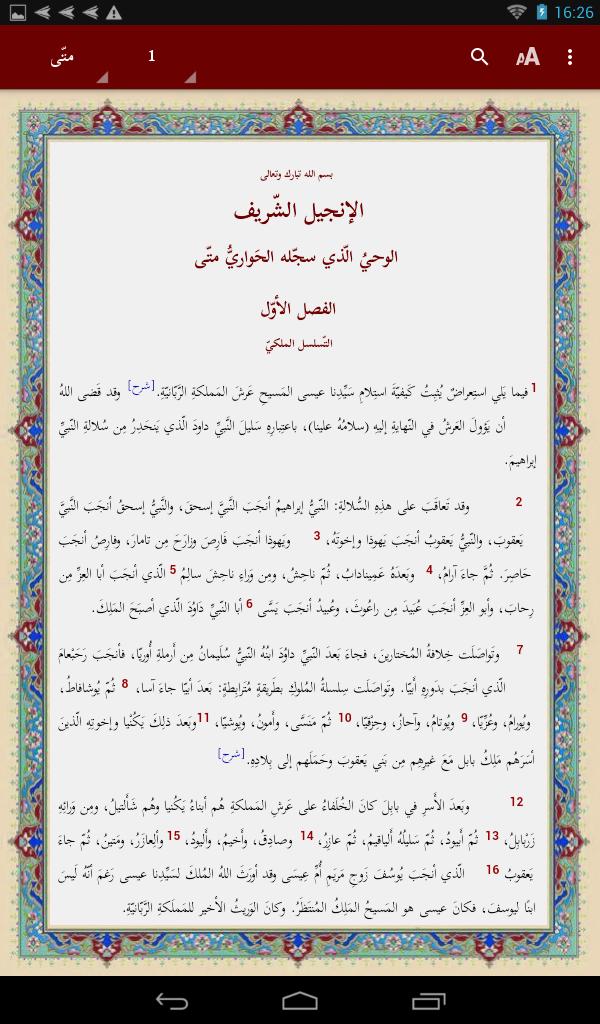 16:26
متّى 1
بسم الله تبارك وتعالى
الإنجيل الشّريف
الوحيُ الّذي سجّله الحَواريُّ متّى
الفصل الأوّل
التّسلسل الملكيّ
1 فيما يَلي استِعراضٌ يُثبِتُ كَيفيّةَ استِلامِ سَيِّدِنا عيسى المَسيحِ عَرشَ المَملكةِ الرَّبّانيّةِ.[شرح] وقد قَضى اللهُ
أن يَؤولَ العَرشُ في النّهايةِ إليهِ (سلامُهُ علينا)، باعتِبارِهِ سَليلَ النَّبيِّ داودَ الّذي يَنحَدِرُ مِن سُلالةِ النّبيِّ
إبراهيمَ.
2 وقد تَعاقَبَ على هذِهِ السُّلالةِ: النّبيُّ إبراهيمُ أنجَبَ النَّبيَّ إسحقَ، والنَّبيُّ إسحقُ أنجَبَ النَّبيَّ
يَعقوبَ، والنّبيُّ يَعقوبُ أنجَبَ يَهوذا وإخوتَهُ، 3 ويَهوذا أنجَبَ فارِصَ وزارَحَ مِن تامارَ، وفارِصُ أنجَبَ
حَاصِرَ. ثُمَّ جاءَ آرامُ، 4 وبَعدَهُ عَمينادابُ، ثُمّ ناحِشُ، ومِن وَراءِ ناحِشَ سالِمُ 5 الّذي أنجَبَ أبا العِزِّ مِن
رِحابَ، وأبو العِزِّ أنجَبَ عُبَيدَ مِن راعُوثَ، وعُبيدُ أنجَبَ يَسَّى 6 أبا النّبيِّ دَاوُدَ الّذي أصبَحَ المَلِكَ.
7 وتَواصَلَت خِلافةُ المُختارينَ، فجاءَ بَعدَ النّبيِّ داوُدَ ابنُهُ النّبيُّ سُلَيمانُ مِن أرملةِ أُوريّا، فأنجَبَ رَحَبْعامَ
الّذي أنجَبَ بدَورِهِ أَبيّا. وتَواصَلَت سِلسلةُ المُلوكِ بطَريقةٍ مُتَرابِطةٍ: بَعدَ أبيّا جاءَ آسا، 8 ثُمّ يُوشافاطُ،
ويُورامُ، وعُزّيّا، 9 ويُوتامُ، وآحازُ، وحِزْقيّا، 10 ثُمّ مَنَسَّى، وآمونُ، ويُوشيّا، 11 وبَعدَ ذلِكَ يَكُنْيا وإخوتِهِ الّذينَ
أسَرَهُم مَلِكُ بابل مَعَ غيرِهِم مِن بَني يَعقوبَ وحَمَلَهم إلى بِلادِهِ.[شرح]
12 وبَعدَ الأَسرِ في بابِلَ كانَ الخُلَفاءُ على عَرشِ المَملكةِ هُم أبناءُ يَكُنيا وهُم شَألتيلُ، ومِن وَرائِهِ
زَرْبابلُ، 13 ثُمّ أَبيودُ، ثُمّ سَليلُهُ ألياقيمُ، ثُمّ عازِرُ، 14 وصادِقُ، وأَخيمُ، وأَليودُ، 15 وألِعازَرُ، ومَتينُ، ثُمّ جاءَ
يَعقوبُ 16 الّذي أنجَبَ يُوسُفَ زَوجَ مَريَمَ أُمِّ عِيسَى وقد أورَثَ اللهُ المُلكَ لسَيِّدِنا عيسى رَغمَ أنّهُ لَيسَ
ابنًا ليوسفَ، فكانَ عيسى هو المَسيحُ المَلِكُ المُنتَظَرُ. وكانَ الوَريثَ الأخير للمَملَكةِ الرَّبّانيّةِ.